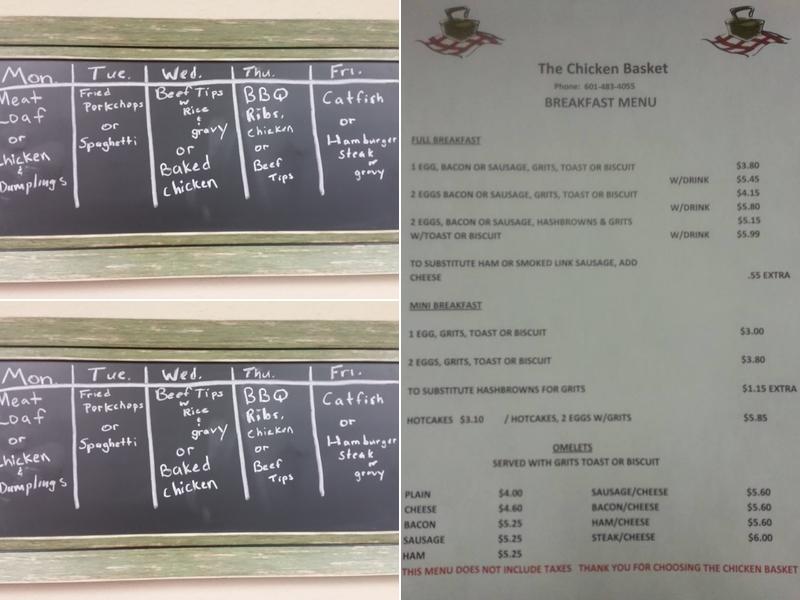 Mon.
Meat
Loaf
or
Chicken
&
Dumplings
Tue.
Fried
Porkchops
or
Spaghetti
Wed.
Beef Tips
w
Rice
&
gravy
or
Baked
Chicken
Thu.
BBQ
Ribs,
Chicken
or
Beef
Tips
Fri.
Catfish
or
Hamburger
Steak
or
gravy
Mon.
Meat
Loaf
or
Chicken
&
Dumplings
Tue.
Fried
Porkchops
or
Spaghetti
Wed.
Beef Tips
w
Rice
&
gravy
or
Baked
Chicken
Thu.
BBQ
Ribs,
Chicken
or
Beef
Tips
Fri.
Catfish
or
Hamburger
Steak
or
gravy
The Chicken Basket
Phone: 601-483-4055
BREAKFAST MENU
FULL BREAKFAST
1 EGG, BACON OR SAUSAGE, GRITS, TOAST OR BISCUIT $3.80
W/DRINK $5.45
2 EGGS BACON OR SAUSAGE, GRITS, TOAST OR BISCUIT $4.15
W/DRINK $5.80
2 EGGS, BACON OR SAUSAGE, HASHBROWNS & GRITS $5.15
W/TOAST OR BISCUIT W/DRINK $5.99
TO SUBSTITUTE HAM OR SMOKED LINK SAUSAGE, ADD
CHEESE .55 EXTRA
MINI BREAKFAST
1 EGG, GRITS, TOAST OR BISCUIT $3.00
2 EGGS, GRITS, TOAST OR BISCUIT $3.80
TO SUBSTITUTE HASHBROWNS FOR GRITS $1.15 EXTRA
HOTCAKES $3.10 / HOTCAKES, 2 EGGS W/GRITS $5.85
OMELETS
SERVED WITH GRITS TOAST OR BISCUIT
PLAIN $4.00 SAUSAGE/CHEESE $5.60
CHEESE $4.60 BACON/CHEESE $5.60
BACON $5.25 HAM/CHEESE $5.60
SAUSAGE $5.25 STEAK/CHEESE $6.00
HAM $5.25
THIS MENU DOES NOT INCLUDE TAXES THANK YOU FOR CHOOSING THE CHICKEN BASKET